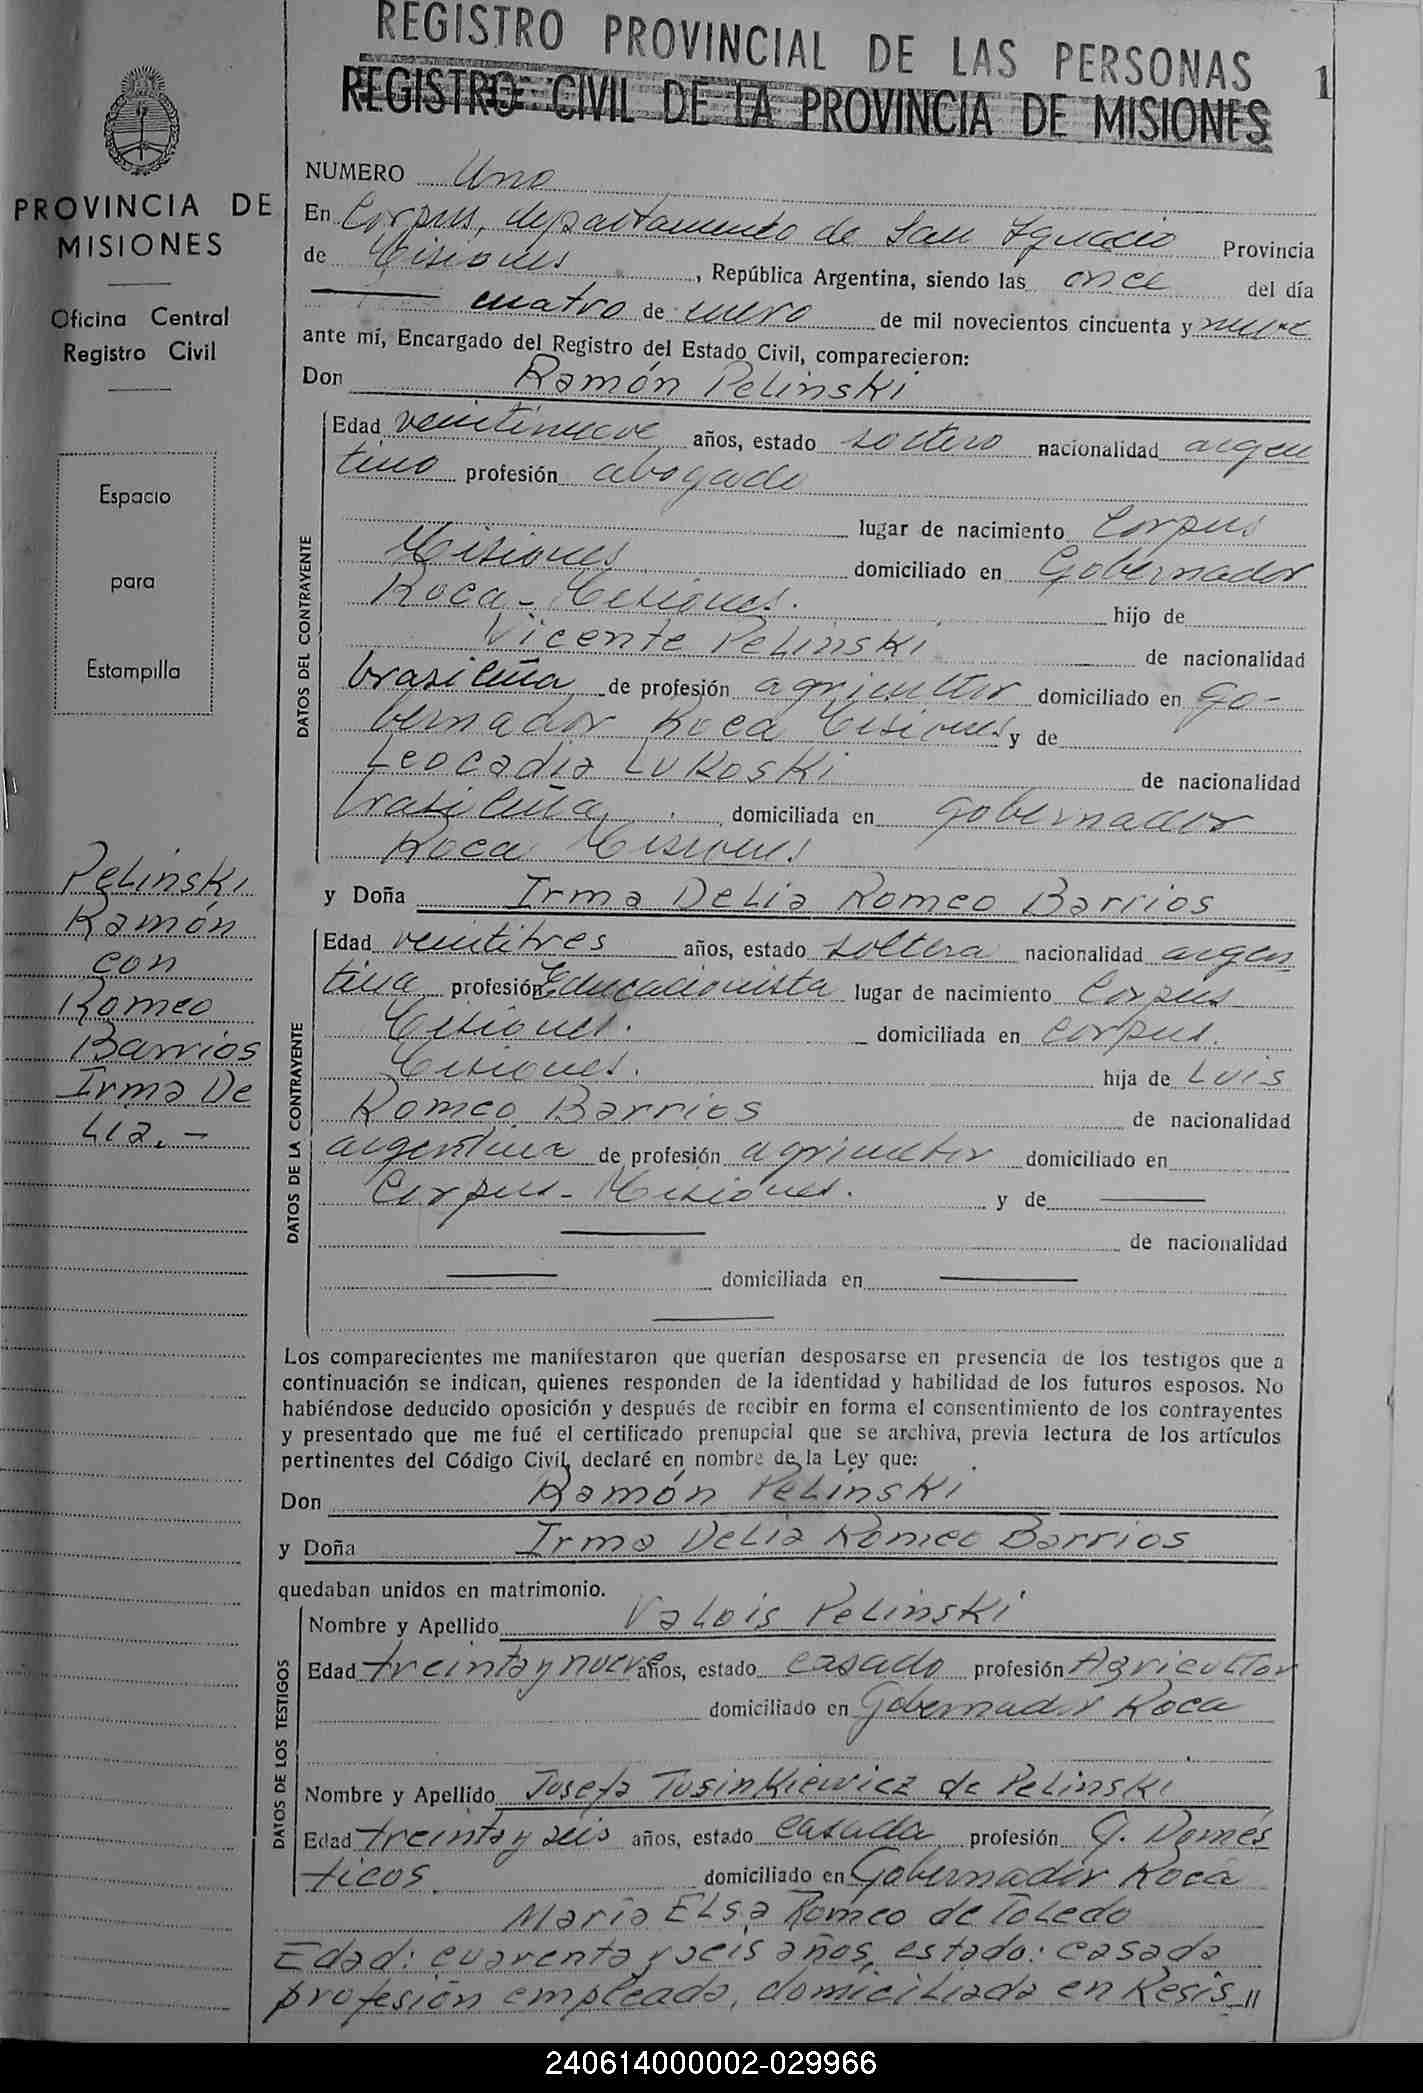 REGISTRO PROVINCIAL DE LAS PERSONAS
1
REGISTRO CIVIL DE LA PROVINCIA DE MISIONES
PROVINCIA DE
MISIONES
Oficina Central
Registro Civil
Espacio
para
Estampilla
Pelinski
Ramón
con
Romeo
Barrios
Irma De
lia.-
NUMERO Uno
En Corpus, departamento de San Ignacio Provincia
de Misiones, República Argentina, siendo las once del día
cuatro de enero de mil novecientos cincuenta y nueve
ante mí, Encargado del Registro del Estado Civil, comparecieron:
Don Ramón Pelinski
DATOS DEL CONTRAYENTE
Edad veintinueve años, estado soltero nacionalidad argen
tino profesión abogado
lugar de nacimiento Corpus
Misiones domiciliado en Gobernador
Roca - Misiones. hijo de
Vicente Pelinski de nacionalidad
brasileña de profesión agricultor domiciliado en Go-
bernador Roca Misiones y de
Leocadia Lukoski de nacionalidad
brasileña domiciliada en Gobernador
Roca Misiones
y Doña Irma Delia Romeo Barrios
DATOS DE LA CONTRAYENTE
Edad veintitres años, estado soltera nacionalidad argen
tina profesión Educacionista lugar de nacimiento Corpus
Misiones. domiciliada en Corpus.
Misiones. hija de Luis
Romeo Barrios de nacionalidad
argentina de profesión agricultor domiciliado en
Corpus - Misiones. y de
de nacionalidad
domiciliada en
Los comparecientes me manifestaron que querían desposarse en presencia de los testigos que a
continuación se indican, quienes responden de la identidad y habilidad de los futuros esposos. No
habiéndose deducido oposición y después de recibir en forma el consentimiento de los contrayentes
y presentado que me fué el certificado prenupcial que se archiva, previa lectura de los artículos
pertinentes del Código Civil, declaré en nombre de la Ley que:
Don Ramón Pelinski
y Doña Irma Delia Romeo Barrios
quedaban unidos en matrimonio.
DATOS DE LOS TESTIGOS
Nombre y Apellido Valois Pelinski
Edad treinta y nueve años, estado casado profesión Agricultor
domiciliado en Gobernador Roca
Nombre y Apellido Josefa Tusinkiewicz de Pelinski
Edad treinta y seis años, estado casada profesión Q. Domés
ticos domiciliado en Gobernador Roca
María Elsa Romeo de Toledo
Edad: cuarenta y seis años, estado: casada
profesión empleada, domiciliada en Resis_"
240614000002-029966